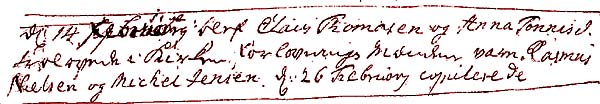 d. 14 Februarij blef Claus Thomasen og Anna Tønnis d.
trolovede i Kirken, forlovnings Mænden varn Rasmus
Nielsen og Michel Jensen. d. 26 Februarij copulerede